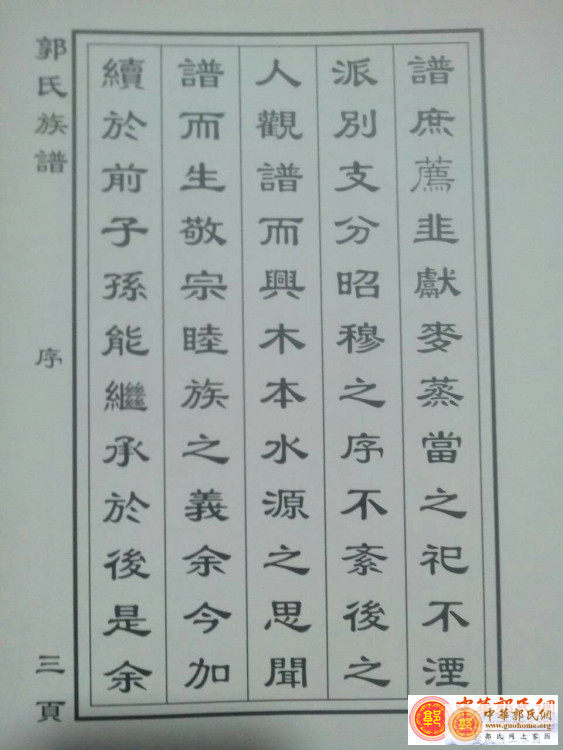 譜庶薦韭獻麥蒸當之祀不湮
派別支分昭穆之序不紊後之
人觀譜而興木本水源之思聞
譜而生敬宗睦族之義余今加
續於前子孫能繼承於後是余
郭氏族譜
序
三頁
中華郭氏網
www.guohome.org
郭氏网上家园